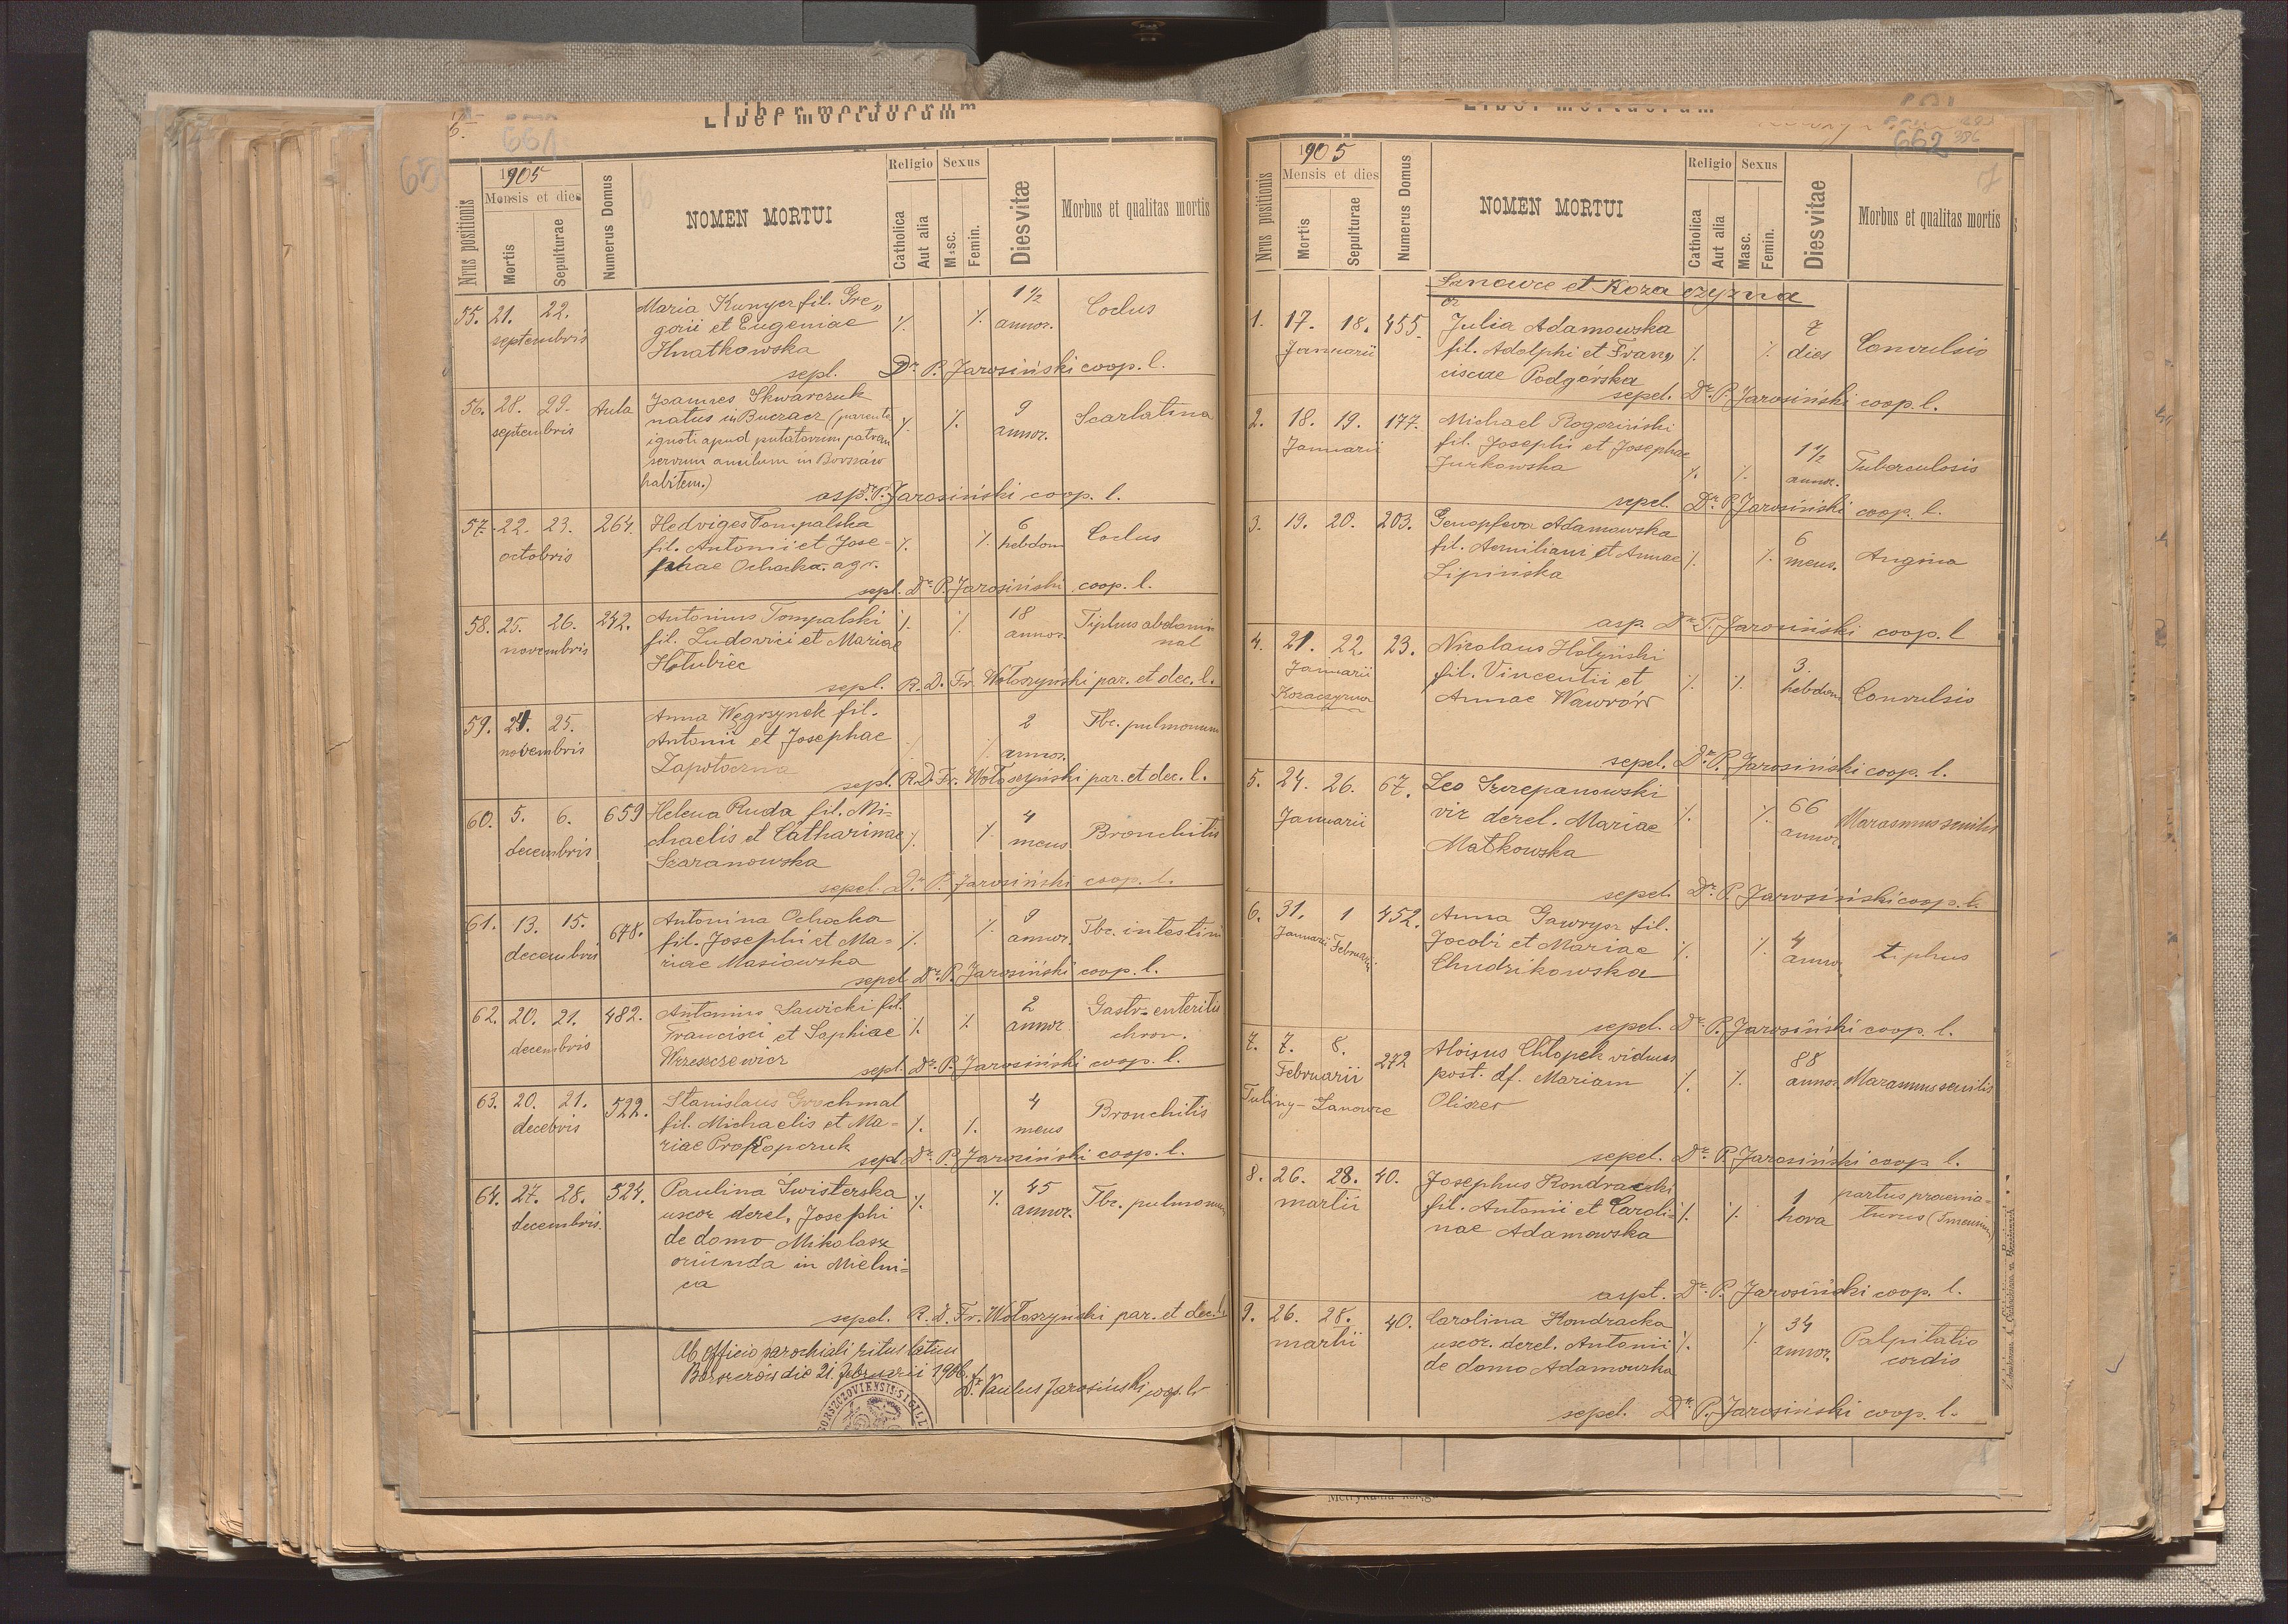 Liber mortuorum
661
1905
Nrus positionis
Mensis et dies
Mortis
Sepulturae
Numerus Domus
NOMEN MORTUI
Religio
Catholica
Aut alia
Sexus
Masc.
Femin.
Dies vitæ
Morbus et qualitas mortis
55. 21. 22. septembris
Maria Kunyer fil. Gre„
gorii et Eugeniae
Hnatkowska
1½ annor.
Coclus
sepl. Dr. P. Jarosiński coop. l.
56. 28. 29. septembris Aula
Joannes Skwarczuk
natus in Buczacz (parente
ignoti apud putatorum patrem
servum aulicum in Borszczów
habitem.)
9 annor.
Scarlatina
asp. Dr. P. Jarosiński coop. l.
57. 22. 23. octobris 264.
Hedviges Tompalska
fil. Antonii et Jose-
phae Ochocka. agr.
6 hebdom
Coclus
sepl. Dr. P. Jarosiński coop. l.
58. 25. 26. novembris 242.
Antonius Tompalski
fil. Ludovici et Mariae
Hołubiec
18 annor.
Tiphus abdomi
nal
sepl. R. D. Fr. Wołoszyński par. et dec. l.
59. 24. 25. novembris
Anna Węgrzynek fil.
Antonii et Josephae
Zapotoczna
2 annor.
Tbc. pulmonum
sepl. R. D. Fr. Wołoszyński par. et dec. l.
60. 5. 6. decembris 659
Helena Ruda fil. Mi-
chaelis et Catharinae
Szaranowska
4 mens
Bronchitis
sepel. Dr. P. Jarosiński coop. l.
61. 13. 15. decembris 678.
Antonina Ochocka
fil. Josephi et Ma-
riae Masiowska
9 annor.
Tbc. intestini
sepel Dr. P. Jarosiński coop. l.
62. 20. 21. decembris 482.
Antonius Sawicki fil.
Francisci et Sophiae
Wrzeszczewicz
2 annor.
Gastr-enteritis
chron.
sepl. Dr. P. Jarosiński coop. l.
63. 20. 21. decebris 522.
Stanislaus Grochmal
fil. Michaelis et Ma-
riae Prokopczuk
4 mens
Bronchitis
sepl Dr. P. Jarosiński coop. l.
64. 27. 28. decembris. 524.
Paulina Świsterska
uxor derel. Josephi
de domo Mikolasz
oriunda in Mielni-
ca
45 annor.
Tbc. pulmonum
sepel. R. D. Fr. Wołoszyński par. et dec. l.
Ab officio parochiali ritus latini
Borszczów die 21. februarii 1906.
Dr. Paulus Jarosiński coop. l.
ORSZCZOVIENSIS SIGILL
Liber mortuorum
662
386
1905
Nrus positionis
Mensis et dies
Mortis
Sepulturae
Numerus Domus
NOMEN MORTUI
Religio
Catholica
Aut alia
Sexus
Masc.
Femin.
Dies vitae
Morbus et qualitas mortis
Łanowce et Kozaczyzna
1. 17. 18. Januarii 455.
Julia Adamowska
fil. Adolphi et Fran„
ciscae Podgórska
2 dies
Convulsio
sepel. Dr. P. Jarosiński coop. l.
2. 18. 19. Januarii 177.
Michael Rogoziński
fil. Josephi et Josephae
Jurkowska
1½ annor.
Tuberculosis
sepel. Dr. P. Jarosiński coop. l.
3. 19. 20. 203.
Genopfeva Adamowska
fil. Aemiliani et Annae
Lipińska
6 mens.
Angina
asp. Dr. P. Jarosiński coop. l
4. 21. 22. Januarii 23.
Kozaczyzna
Nicolaus Hołyński
fil. Vincentii et
Annae Wawrów
3. hebdom
Convulsio
sepel. Dr. P. Jarosiński coop. l.
5. 24. 26. Januarii 67.
Leo Szczepanowski
vir derel. Mariae
Matkowska
66 annor.
Marasmus senilis
sepel. Dr. P. Jarosiński coop. l.
6. 31. Januarii 1 Februarii 452.
Anna Gawrysz fil.
Jacobi et Mariae
Chudzikowska
4 annor.
tiphus
sepel. Dr. P. Jarosiński coop. l.
7. 7. 8. Februarii 272
Tuliny-Łanowce
Aloisus Chłopek viduus
post. df. Mariam
Oliszer
88 annor.
Marasmus senilis
sepel. Dr. P. Jarosiński coop. l.
8. 26. 28. martii 40.
Josephus Kondracki
fil. Antonii et Caroli-
nae Adamowska
1 hora
partus praema-
turus
aspt. Dr. P. Jarosiński coop. l.
9. 26. 28. martii 40.
Carolina Kondracka
uxor. derel. Antonii
de domo Adamowska
34 annor.
Palpitatio
cordis
sepel. Dr. P. Jarosiński coop. l.